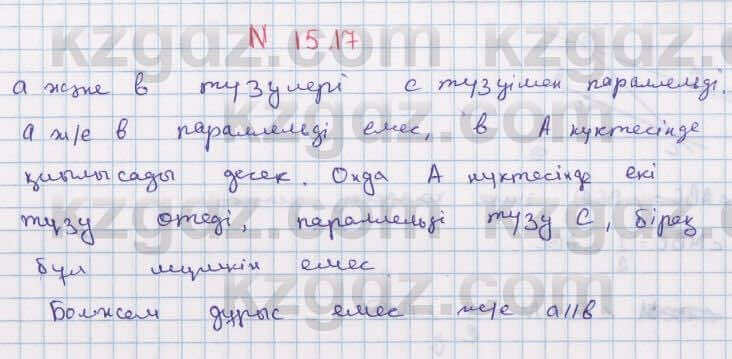 N 15.17
а және в түзулері с түзуімен параллельді.
а ж/е в параллельді емес, в А нүктесінде
қиылысады десек. Онда А нүктесінде екі
түзу өтеді, параллельді түзу С, бірақ
бұл мүмкін емес
Болжам дұрыс емес ж/е а//в